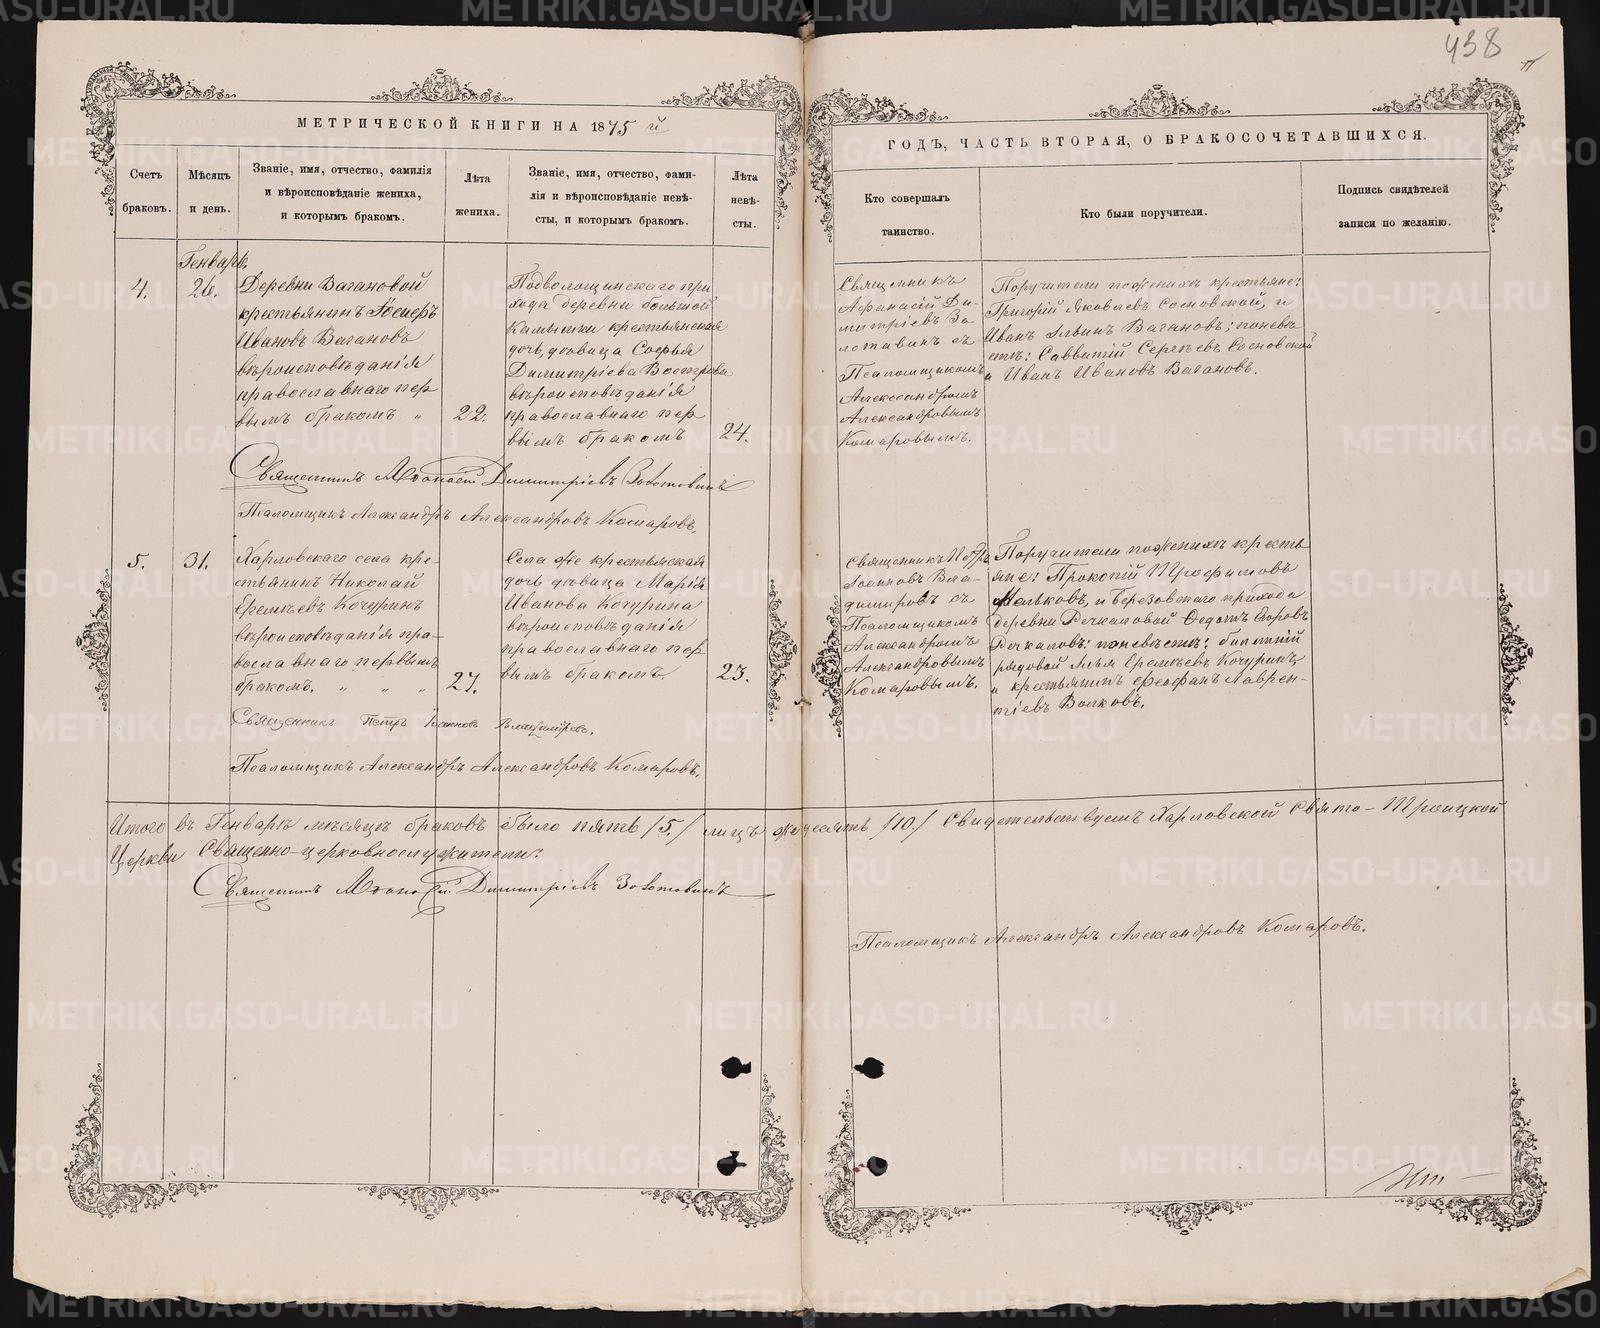 438
МЕТРИЧЕСКОЙ КНИГИ НА 1875 й
ГОДЪ, ЧАСТЬ ВТОРАЯ, О БРАКОСОЧЕТАВШИХСЯ.
Счетъ
браковъ.
Мѣсяцъ
и день.
Званіе, имя, отчество, фамилія
и вѣроисповѣданіе жениха,
и которымъ бракомъ.
Лѣта
жениха.
Званіе, имя, отчество, фами-
лія и вѣроисповѣданіе невѣ-
сты, и которымъ бракомъ.
Лѣта
невѣ-
сты.
Кто совершалъ
таинство.
Кто были поручители.
Подпись свидѣтелей
записи по желанію.
Генварь.
4.
26.
Деревни Вагановой
крестьянинъ
Ивановъ Вагановъ
вѣроисповѣданія
православнаго пер
вымъ бракомъ "
22.
Подволошинскаго при
хода деревни большой
Камышки крестьянская
дочь, дѣвица Софья
Димитріева
вѣроисповѣданія
православнаго пер
вымъ бракомъ
24.
Священникъ
Афанасій Ди-
митріевъ Зо
лотавинъ съ
Псаломщикомъ
Александромъ
Александровымъ
Комаровымъ.
Поручители по женихѣ крестьяне:
Григорій Яковлевъ Сосновской, и
Иванъ Ильинъ Вагановъ; по невѣ
стѣ: Савватій Сергѣевъ Сосновской
и Иванъ Ивановъ Вагановъ.
Священникъ Афанасій Димитріевъ Золотавинъ
Псаломщикъ Александръ Александровъ Комаровъ.
5.
31.
Харловскаго села кре-
стьянинъ Николай
Еремѣевъ Кочуринъ
вѣроисповѣданія пра-
вославнаго первымъ
бракомъ. " " "
27.
Села же крестьянская
дочь дѣвица Марія
Иванова Кочурина
вѣроисповѣданія
православнаго пер
вымъ бракомъ
23.
Священникъ Петръ
Іоанновъ Вла-
димировъ съ
Псаломщикомъ
Александромъ
Александровымъ
Комаровымъ.
Поручители по женихѣ кресть
яне: Прокопій Трофимовъ
и Березовскаго прихода
деревни Речкаловой Федотъ Егоровъ
Речкаловъ: по невѣстѣ: билетній
рядовой Илья Еремѣевъ Кочуринъ
и крестьянинъ Феофанъ Лаврен-
тіевъ Волковъ.
Священникъ Петръ Іоанновъ Владиміровъ.
Псаломщикъ Александръ Александровъ Комаровъ.
Итого въ Генварѣ мѣсяцѣ браковъ было пять /5./ лицъ же десять /10./ Свидетельствуемъ Харловской Свято-Троицкой
Церкви Священно-церковнослужители:
Священникъ Афанасій Димитріевъ Золотавинъ
Псаломщикъ Александръ Александровъ Комаровъ.
METRIKI.GASO-URAL.RU